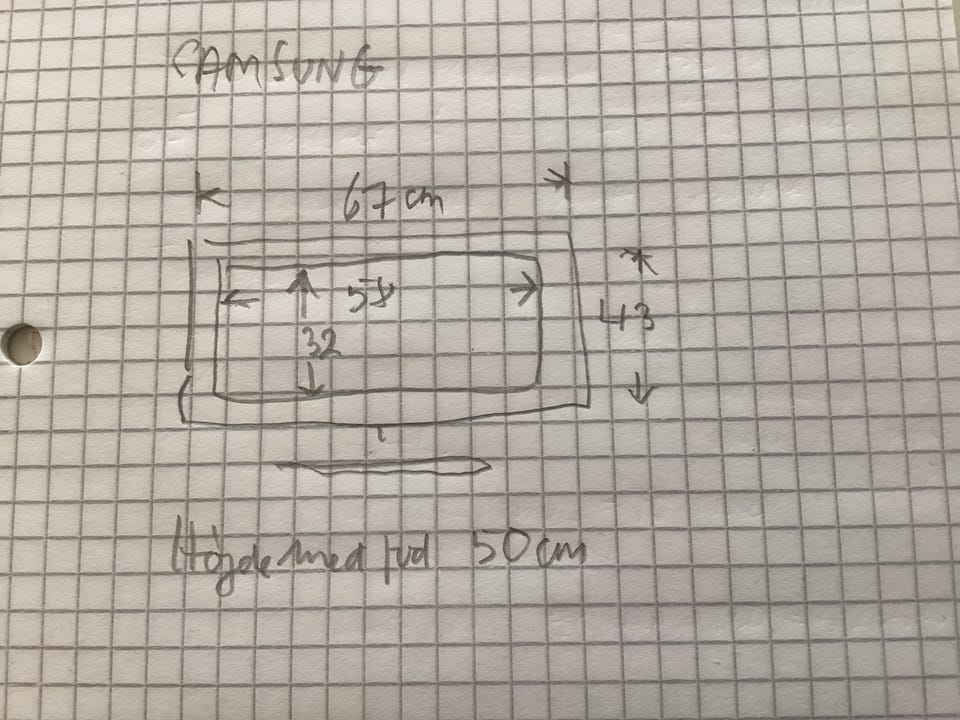 SAMSUNG
67 cm
58
43
32
Højde med fod 50 cm